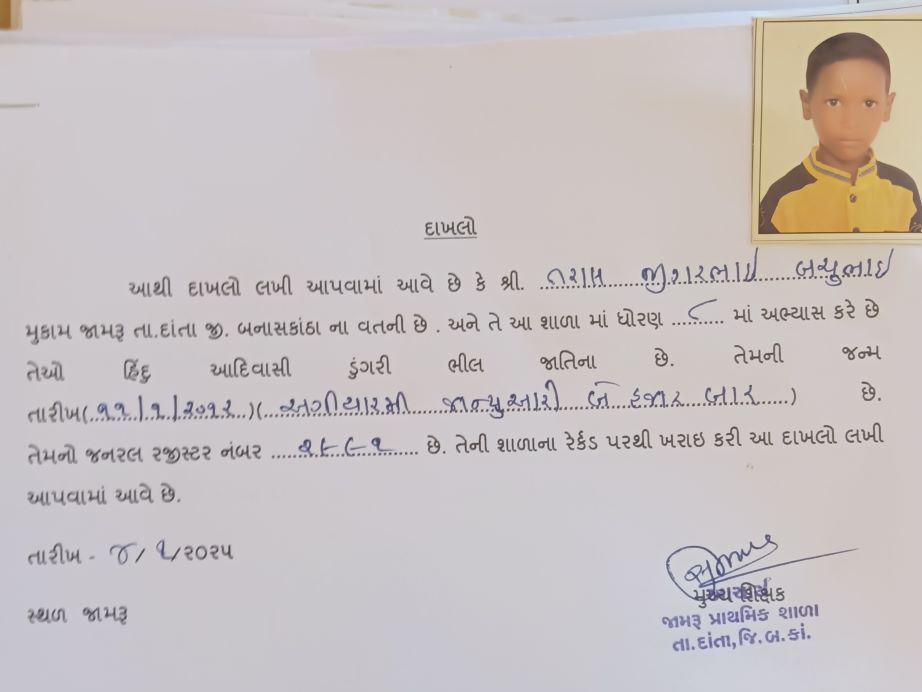 દાખલો
આથી દાખલો લખી આપવામાં આવે છે કે શ્રી. તરાલ જીગરભાઇ બચુભાઇ
મુકામ જામરૂ તા.દાંતા જી. બનાસકાંઠા ના વતની છે . અને તે આ શાળા માં ધોરણ ૮ માં અભ્યાસ કરે છે
તેઓ હિંદુ આદિવાસી ડુંગરી ભીલ જાતિના છે. તેમની જન્મ
તારીખ(૧૧/૧/૨૦૧૨)(અગીયારમી જાન્યુઆરી બે હજાર બાર) છે.
તેમનો જનરલ રજીસ્ટર નંબર ૨૯૯૧ છે. તેની શાળાના રેર્કડ પરથી ખરાઇ કરી આ દાખલો લખી
આપવામાં આવે છે.
તારીખ - ૪/૧/૨૦૨૫
સ્થળ જામરૂ
મુખ્ય શિક્ષક
જામરૂ પ્રાથમિક શાળા
તા.દાંતા,જિ.બ.કાં.